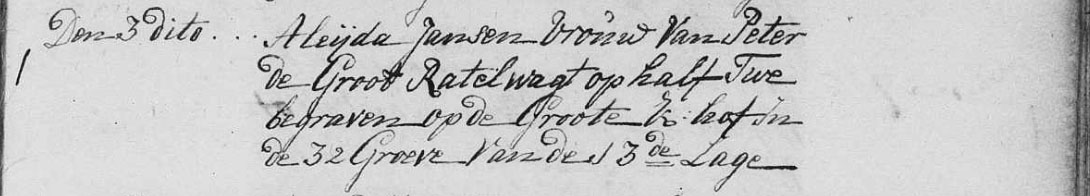 Den 3 dito . . . Aleijda Jansen Vrouw Van Peter
de Groot Ratelwagt op half Twe
begraven op de Groote K: hof in
de 32 Groeve Van de 13de Lage